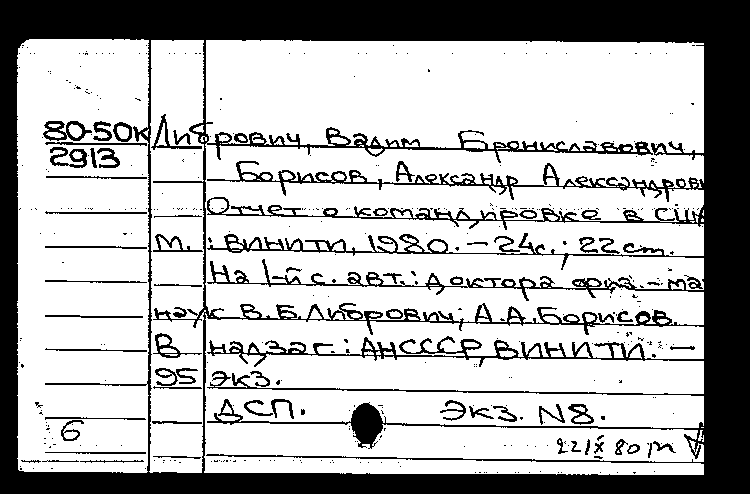 80-50к Либрович, Вадим Брониславович,
2913
Борисов, Александр Александрови
Отчет о командировке в США
М. : ВИНИТИ, 1980. - 24с.; 22 cm.
На 1-й с. авт.: доктора физ.-ма
наук В.Б.Либрович; А.А.Борисов.
В надзаг.: АНСССР, ВИНИТИ. -
95 экз.
ДСП. Экз. N8.
6
22 IX 80